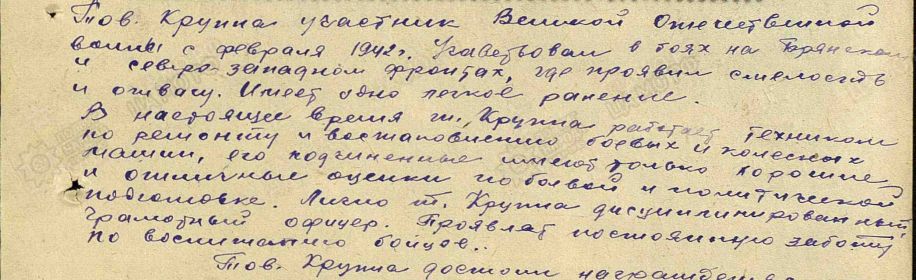 Тов. Круппа участник Великой Отечественной
войны с февраля 1942г. Участвовал в боях на Брянском
и северо-западном фронтах, где проявил смелость
и отвагу. Имеет одно легкое ранение.
В настоящее время т. Круппа работает техником
по ремонту и востановлению боевых и колесных
машин, его подчиненные имеют только хорошие
и отличные оценки по боевой и политической
подготовке. Лично т. Круппа дисциплинированный,
грамотный офицер. Проявляет постоянную заботу
по воспитанию бойцов..
Тов. Круппа достоин